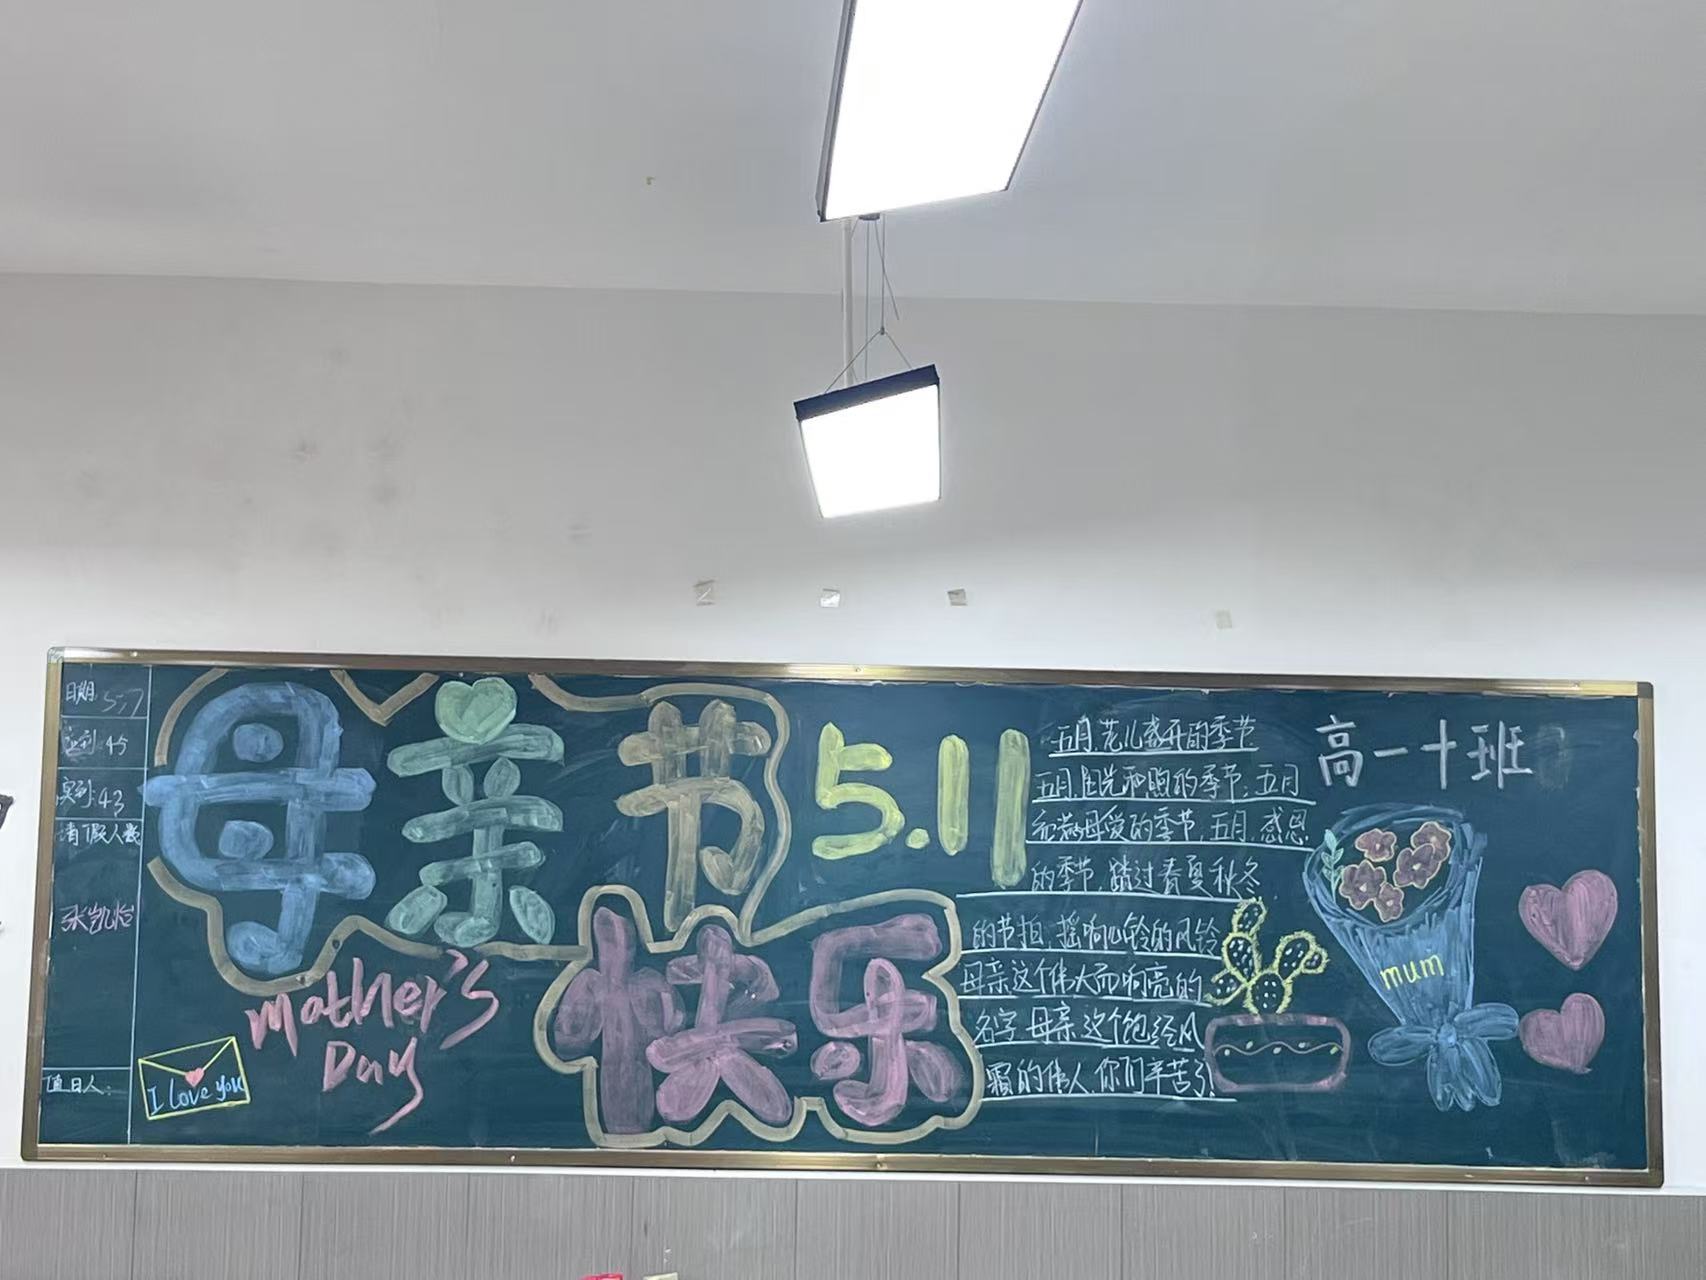 日期 5.7
应到:45
实到:43
请假人数
张凯怡
值日人:
母亲节
快乐
5.11
mother's
Day
I love you
五月,花儿盛开的季节
五月,阳光和煦的季节,五月
母爱的季节,五月,感恩
的季节,踏过春夏秋冬
的节拍,摇响心铃的风铃
母亲这个伟大而响亮的
名字 母亲这个饱经风
霜的伟人,你们辛苦了!
高一十班
mum